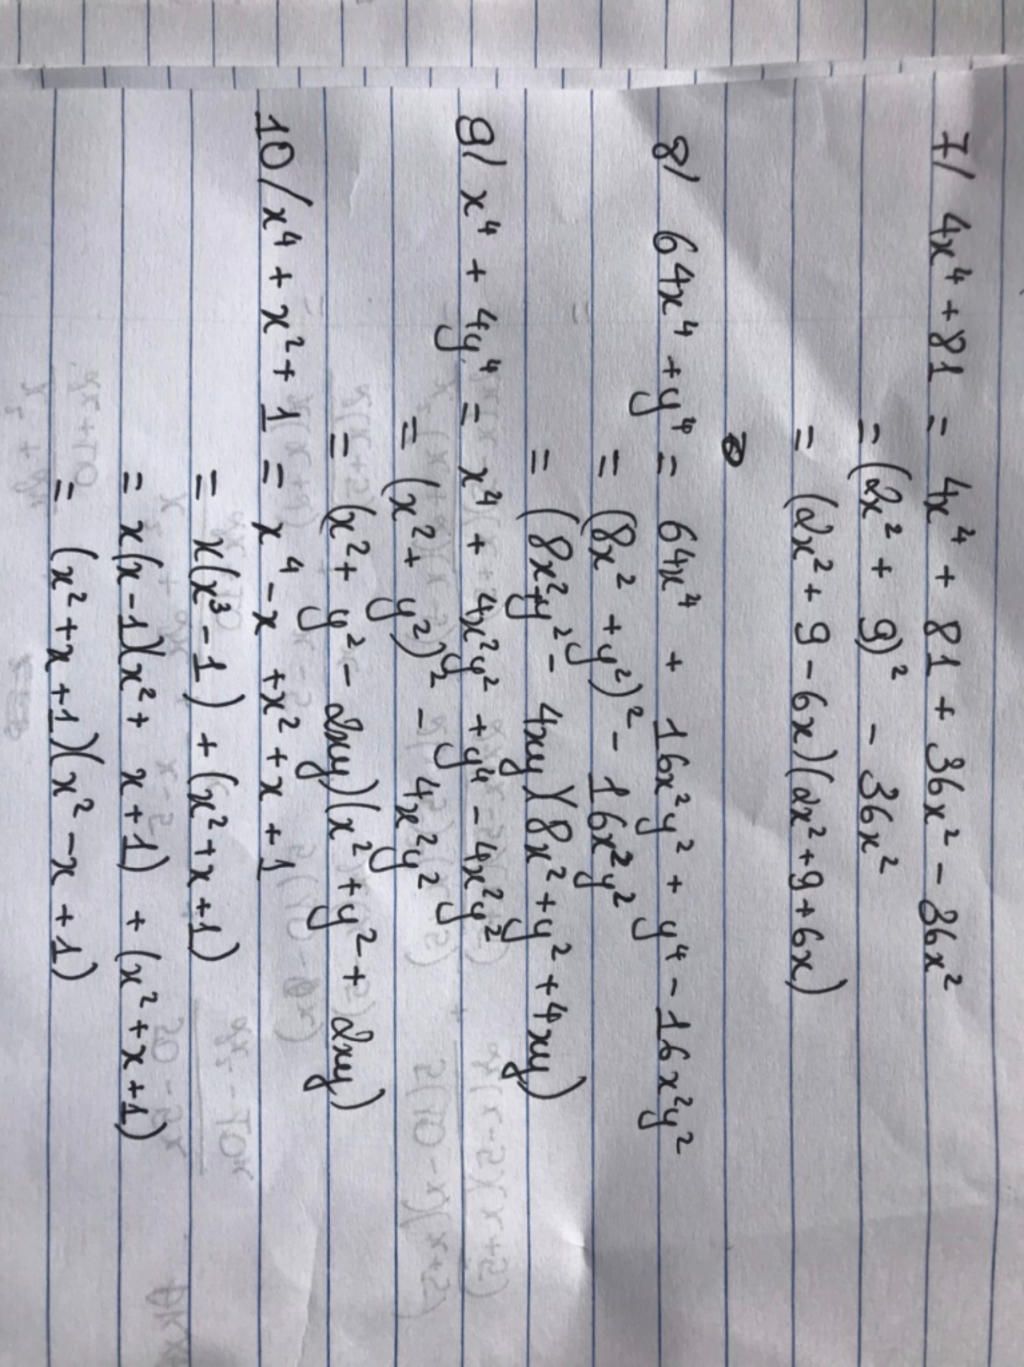 7/ 4x⁴ + 81 = 4x⁴ + 81 + 36x² - 36x²
= (2x² + 9)² - 36x²
= (2x² + 9 - 6x)(2x² + 9 + 6x)
8/ 64x⁴ + y⁴ = 64x⁴ + 16x²y² + y⁴ - 16x²y²
= (8x² + y²)² - 16x²y²
= (8x² + y² - 4xy)(8x² + y² + 4xy)
9/ x⁴ + 4y⁴ = x⁴ + 4x²y² + y⁴ - 4x²y²
= (x² + y²)² - 4x²y²
= (x² + y² - 2xy)(x² + y² + 2xy)
10/ x⁴ + x² + 1 = x⁴ - x + x² + x + 1
= x(x³ - 1) + (x² + x + 1)
= x(x - 1)(x² + x + 1) + (x² + x + 1)
= (x² + x + 1)(x² - x + 1)